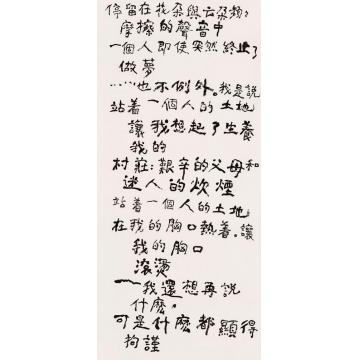 停留在花朵與云朵類?
摩擦的聲音中
一個人即使突然終止了
做夢
……也不例外。我是說
站着一個人的土地
讓我想起了生養
我的
村莊:艱辛的父母和
迷人的炊煙
站着一個人的土地
在我的胸口熱着。讓
我的胸口
滾燙
——我還想再說
什麽,
可是什麽都顯得
拘謹